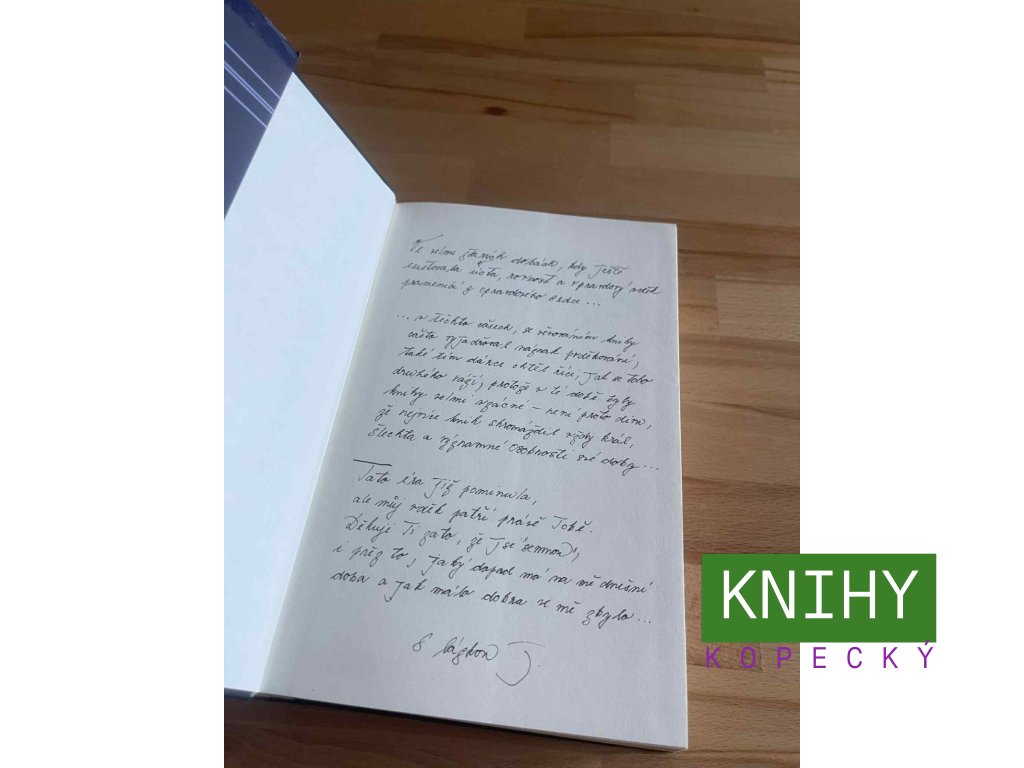 Ve velmi dávných dobách, kdy ještě
existovala úcta, vornost a opravdový vděk
pramenící z opravdového srdce...
... v těchto časech, se věnováním knihy
často vyjadřoval náznak poděkování,
také tím dárce chtěl říci, jak se toho
druhého váží, protože v té době byly
knihy velmi vzácné - není proto divu,
že nejvíce knih shromáždil vždy král,
šlechta a významné osobnosti své doby...
Tato éra již pominula,
ale můj vděk patří právě Tobě.
Děkuji Ti zato, že jsi "semnou",
i přez to, jaký dopad má na mě dnešní
doba a jak málo dobra ve mě zbylo...
S láskou J.
KNIHY
KOPECKÝ